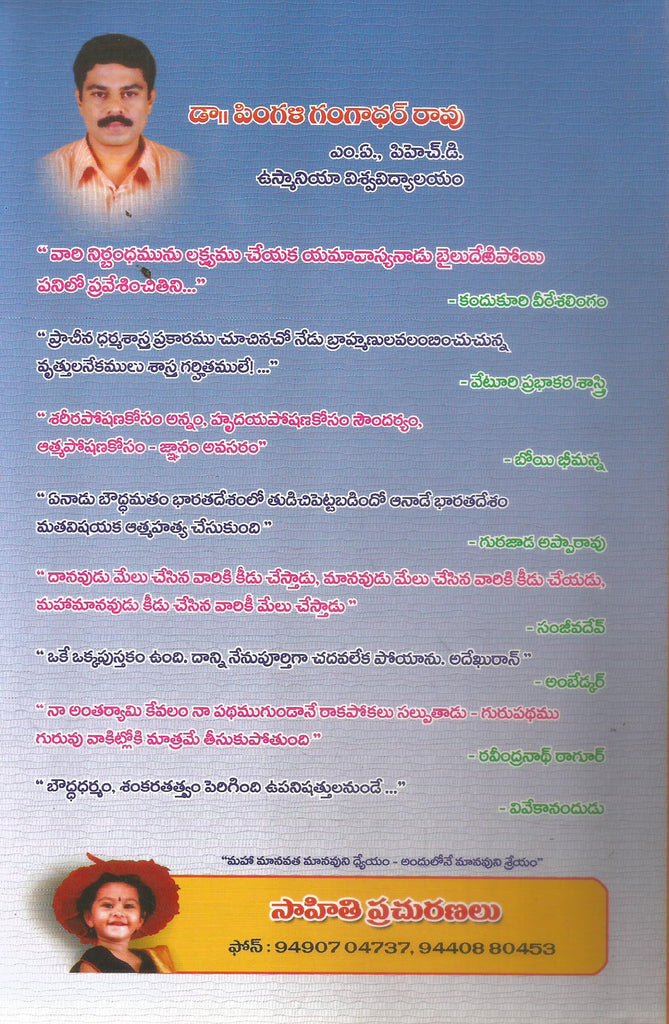 డా॥ పింగళి గంగాధర్ రావు
ఎం.ఏ., పిహెచ్.డి.
ఉస్మానియా విశ్వవిద్యాలయం
“ వారి నిర్బంధమును లక్ష్యము చేయక యమావాస్యనాడు బైలుదేఱిపోయి
పనిలో ప్రవేశించితిని...”
- కందుకూరి వీరేశలింగం
“ ప్రాచీన ధర్మశాస్త్ర ప్రకారము చూచినచో నేడు బ్రాహ్మణులవలంబించుచున్న
వృత్తులనేకములు శాస్త్ర గర్హితములే! ...”
- వేటూరి ప్రభాకర శాస్త్రి
“ శరీరపోషణకోసం అన్నం, హృదయపోషణకోసం సౌందర్యం,
ఆత్మపోషణకోసం - జ్ఞానం అవసరం”
- బోయి భీమన్న
“ ఏనాడు బౌద్ధమతం భారతదేశంలో తుడిచిపెట్టబడిందో ఆనాడే భారతదేశం
మతవిషయక ఆత్మహత్య చేసుకుంది ”
- గురజాడ అప్పారావు
“ దానవుడు మేలు చేసిన వారికి కీడు చేస్తాడు, మానవుడు మేలు చేసిన వారికి కీడు చేయడు,
మహామానవుడు కీడు చేసిన వారికీ మేలు చేస్తాడు ”
- సంజీవదేవ్
“ ఒకే ఒక్కపుస్తకం ఉంది. దాన్ని నేనుపూర్తిగా చదవలేక పోయాను. అదేఖురాన్ ”
- అంబేడ్కర్
“ నా అంతర్యామి కేవలం నా పథముగుండానే రాకపోకలు సల్పుతాడు - గురుపథము
గురువు వాకిట్లోకి మాత్రమే తీసుకుపోతుంది ”
- రవీంద్రనాథ్ ఠాగూర్
“ బౌద్ధధర్మం, శంకరతత్త్వం పెరిగింది ఉపనిషత్తులనుండే ...”
- వివేకానందుడు
“మహా మానవత మానవుని ధ్యేయం - అందులోనే మానవుని శ్రేయం”
సాహితి ప్రచురణలు
ఫోన్ : 94907 04737, 94408 80453